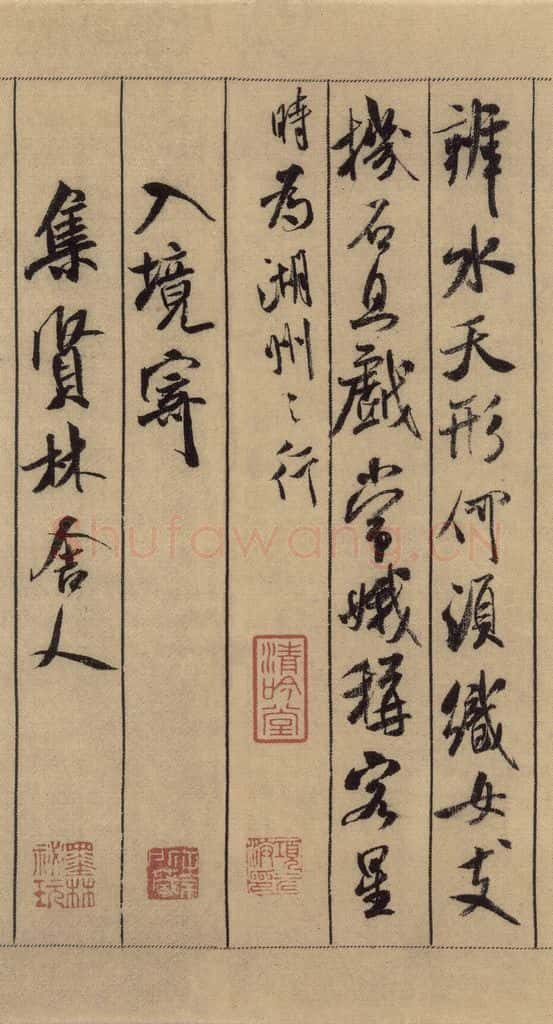 辨水天形何須織女支
機石且戲常娥稱客星
時為湖州之行
入境寄
集賢林舍人
清吟堂
墨林秘玩
Shufawang.CN